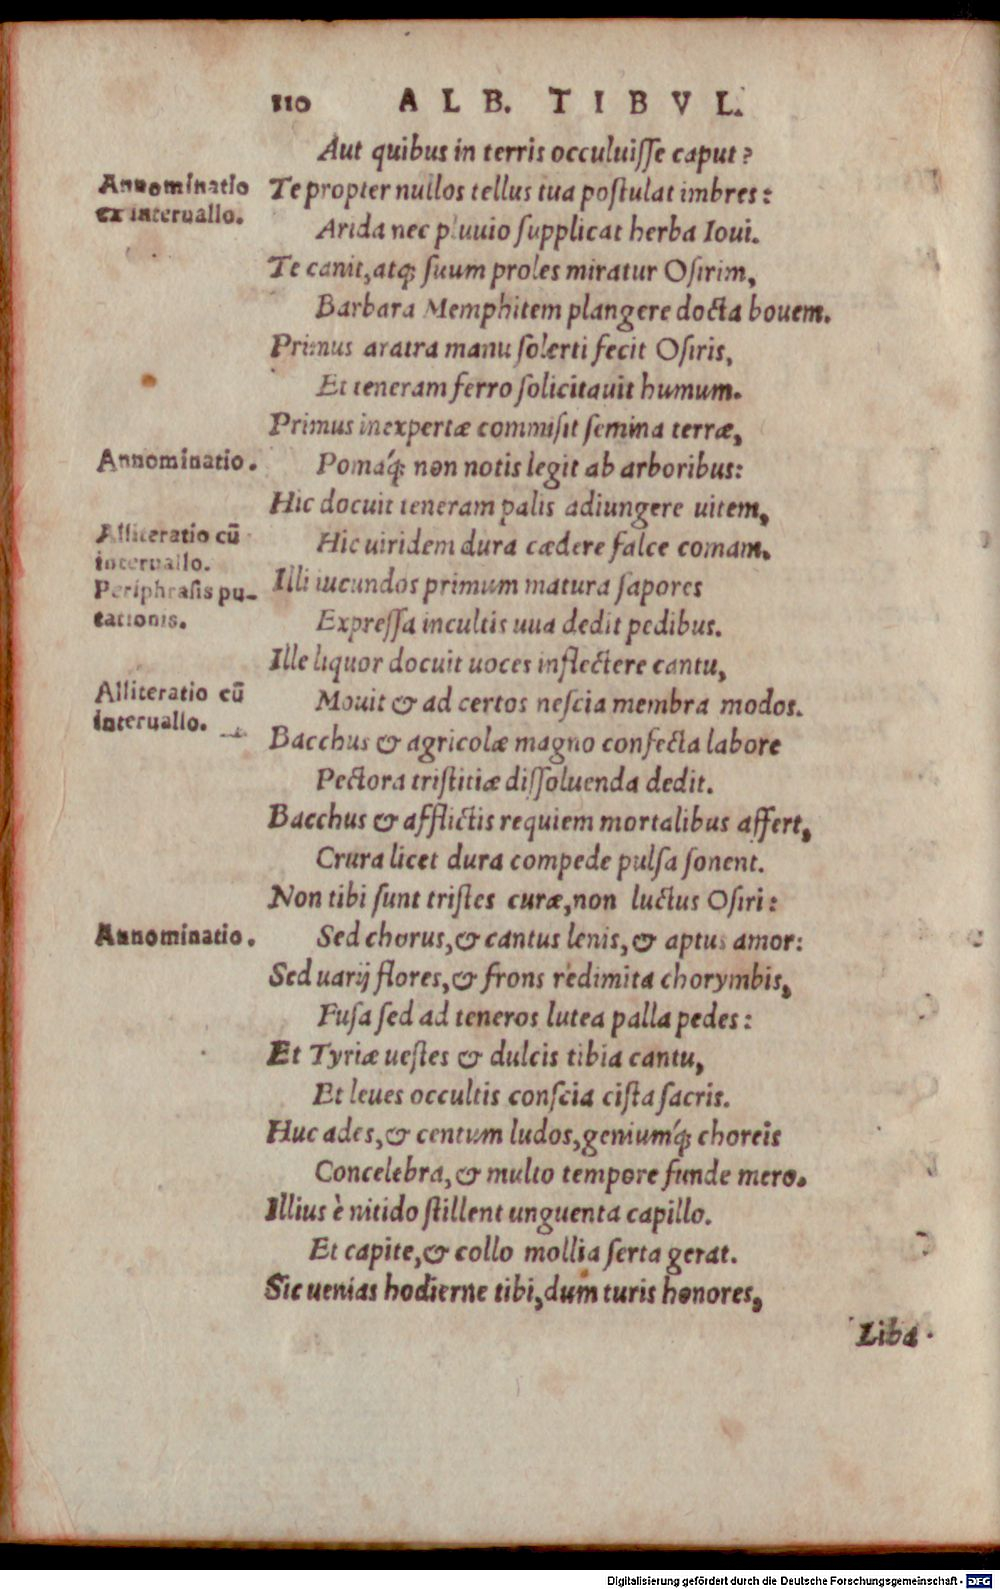 110 ALB. TIBVL.
Aut quibus in terris occuluiſſe caput?
Annominatio
ex interuallo.
Te propter nullos tellus tua poſtulat imbres:
Arida nec pluuio ſupplicat herba Ioui.
Te canit, atq; ſuum proles miratur Oſirim,
Barbara Memphitem plangere docta bouem.
Primus aratra manu ſolerti fecit Oſiris,
Et teneram ferro ſolicitauit humum.
Primus inexpertæ commiſit ſemina terræ,
Annominatio.
Pomaq́; non notis legit ab arboribus:
Hic docuit teneram palis adiungere uitem,
Alliteratio cū
interuallo.
Periphraſis pu-
tationis.
Hic uiridem dura cædere falce comam.
Illi iucundos primum matura ſapores
Expreſſa incultis uua dedit pedibus.
Ille liquor docuit uoces inflectere cantu,
Alliteratio cū
interuallo.
Mouit & ad certos neſcia membra modos.
Bacchus & agricolæ magno confecta labore
Pectora triſtitiæ diſſoluenda dedit.
Bacchus & afflictis requiem mortalibus affert,
Crura licet dura compede pulſa ſonent.
Non tibi ſunt triſtes curæ, non luctus Oſiri:
Annominatio.
Sed chorus, & cantus lenis, & aptus amor:
Sed uarij flores, & frons redimita chorymbis,
Fuſa ſed ad teneros lutea palla pedes:
Et Tyriæ ueſtes & dulcis tibia cantu,
Et leues occultis conſcia ciſta ſacris.
Huc ades, & centum ludos, geniumq́; choreis
Concelebra, & multo tempore funde mero.
Illius è nitido ſtillent unguenta capillo.
Et capite, & collo mollia ſerta gerat.
Sic uenias hodierne tibi, dum turis honores,
Liba
Digitalisierung gefördert durch die Deutsche Forschungsgemeinschaft - DFG